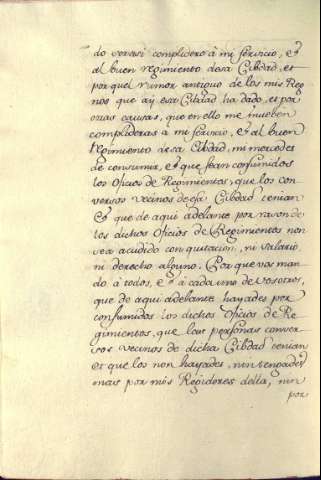 do ver asi complidero à mi servicio, é
al buen regimiento desa Cibdad, et
por quel rumor antiguo de los mis Reg
nos que aÿ esta Cibdad ha dado, et por
otras causas, que en ello me mueben
complideras à mi servicio, é al buen
regimiento desa Cibdad, mi merced es
de consumir, é que sean consumidos
los oficios de Regimientos, que los con
versos vecinos desa Cibdad tenian
é que de aqui adelante por razon de
los dichos oficios de Regimientos non
sea acudido con quitacion, ni salario
ni derecho alguno. Por que vos man
do à todos, é à cada uno de vosotros,
que de aqui adelante hayades por
consumidos los dichos oficios de Re
gimientos, que los personas conver
sos vecinos de dicha Cibdad tenian
et que los non hayades, nin tengades
mas por mis Regidores della, nin
por